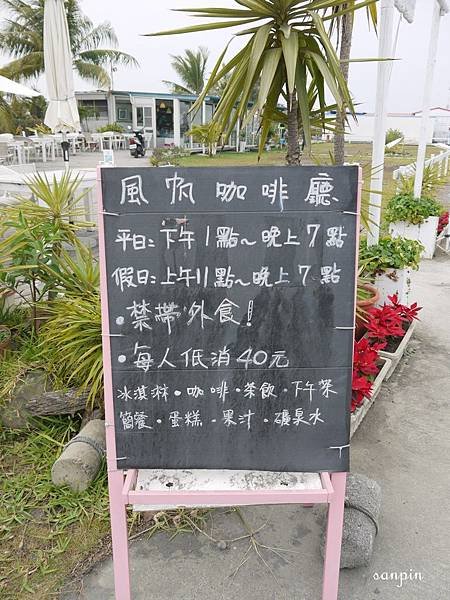 風帆咖啡廳
平日:下午1點~晚上7點
假日:上午11點~晚上7點
·禁帶外食!
·每人低消40元
冰淇淋·咖啡·茶飲·下午茶
簡餐·蛋糕·果汁·礦泉水
sanpin